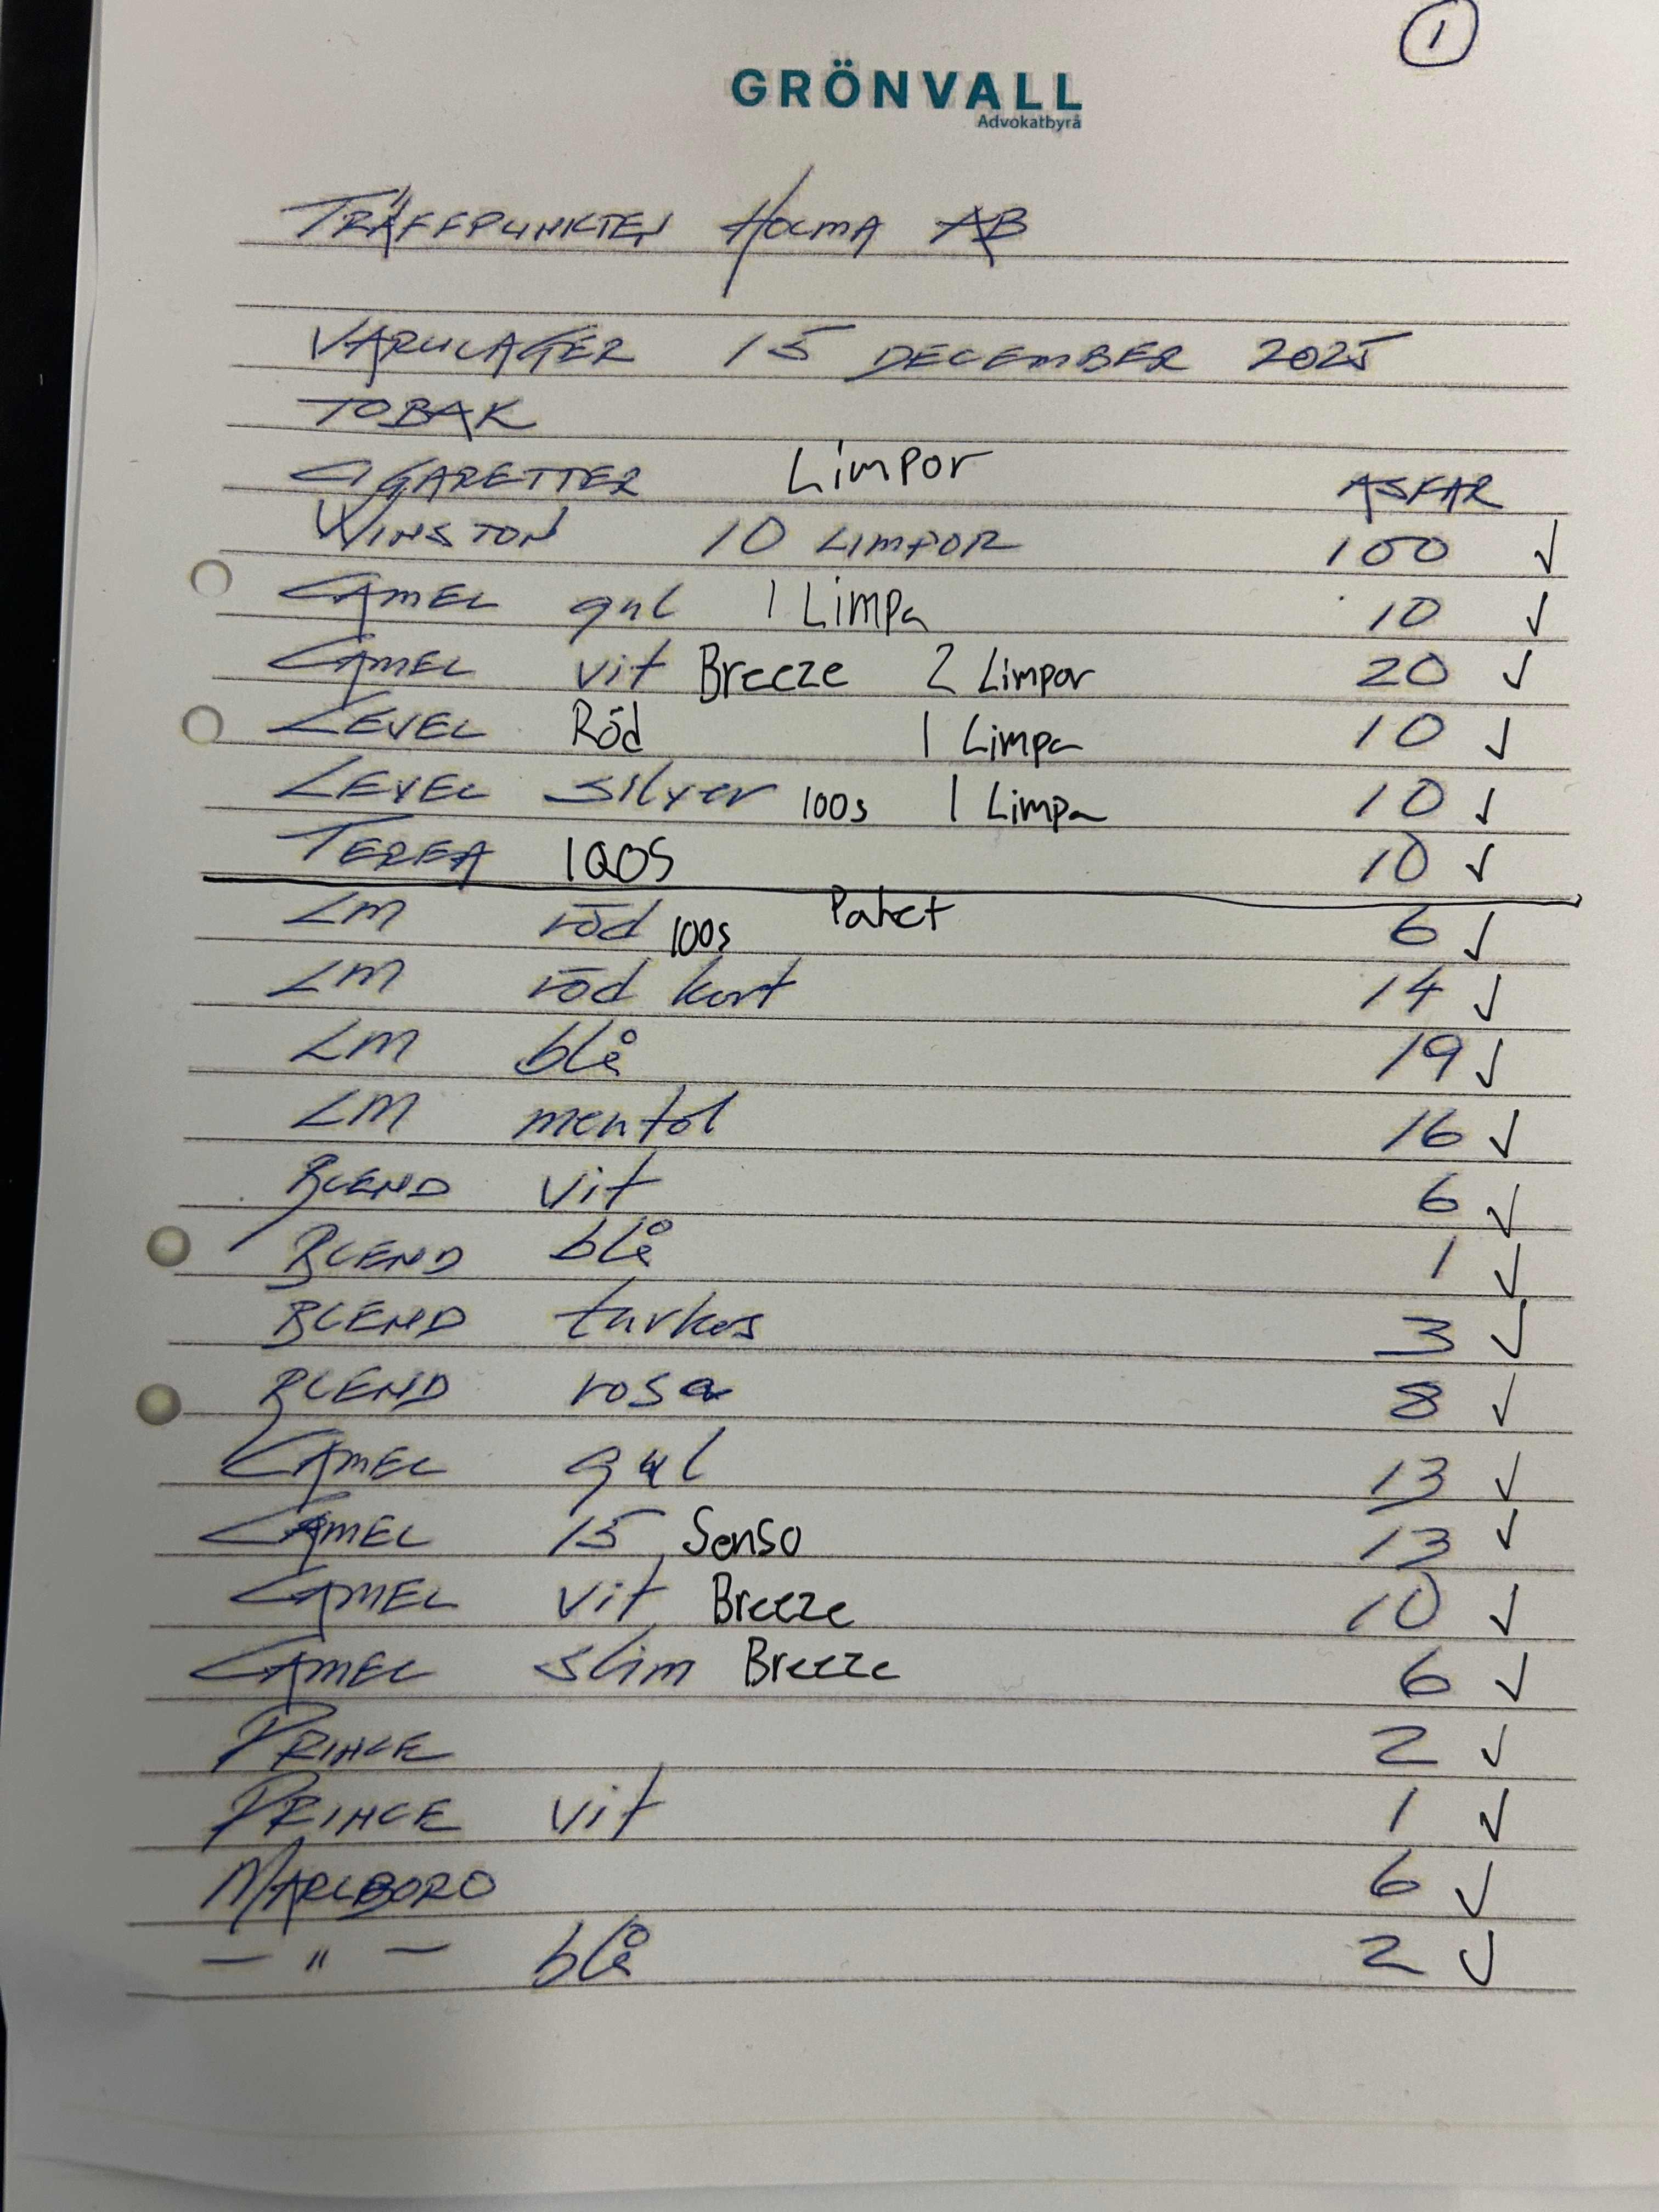 1
GRÖNVALL
Advokatbyrå
TRÄFFPUNKTEN HOLMA AB
VARULAGER 15 DECEMBER 2025
TOBAK
CIGARETTER Limpor ASKAR
WINSTON 10 LIMPOR 100 ✓
CAMEL gul 1 Limpa 10 ✓
CAMEL vit Breeze 2 Limpor 20 ✓
LEVEL Röd 1 Limpa 10 ✓
LEVEL silver 100s 1 Limpa 10 ✓
TEREA IQOS 10 ✓
LM röd 100s Paket 6 ✓
LM röd kort 14 ✓
LM blå 19 ✓
LM mentol 16 ✓
BLEND vit 6 ✓
BLEND blå 1 ✓
BLEND turkos 3 ✓
BLEND rosa 8 ✓
CAMEL gul 13 ✓
CAMEL 15 Senso 13 ✓
CAMEL vit Breeze 10 ✓
CAMEL slim Breeze 6 ✓
PRINCE 2 ✓
PRINCE vit 1 ✓
MARLBORO 6 ✓
— " — blå 2 ✓